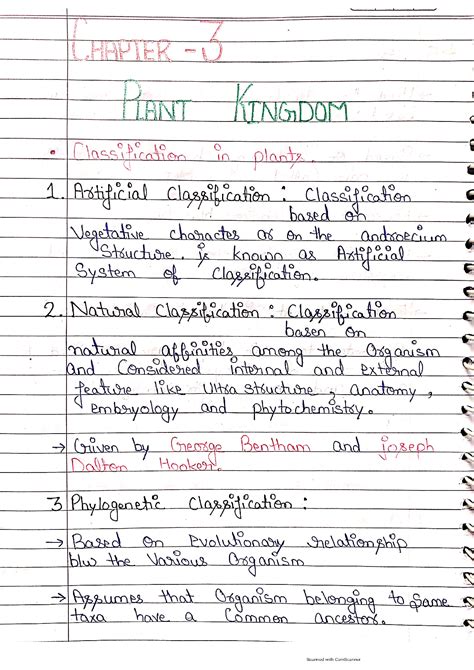 CHAPTER - 3
PLANT KINGDOM
• Classification in plants.
1. Artificial Classification : Classification
based on
Vegetative character or on the androecium
Structure. is known as Artificial
System of Classification.
2. Natural Classification : Classification
basen on
natural affinities among the Organism
and Considered internal and external
feature like Ultra structure, anatomy,
embryology and phytochemistry.
→ Given by George Bentham and joseph
Dalton Hooker.
3 Phylogenetic Classification :
→ Based on Evolutionary relationship
b/w the Various Organism
→ Assumes that Organism belonging to Same
taxa have a Common ancestor.
Scanned with CamScanner